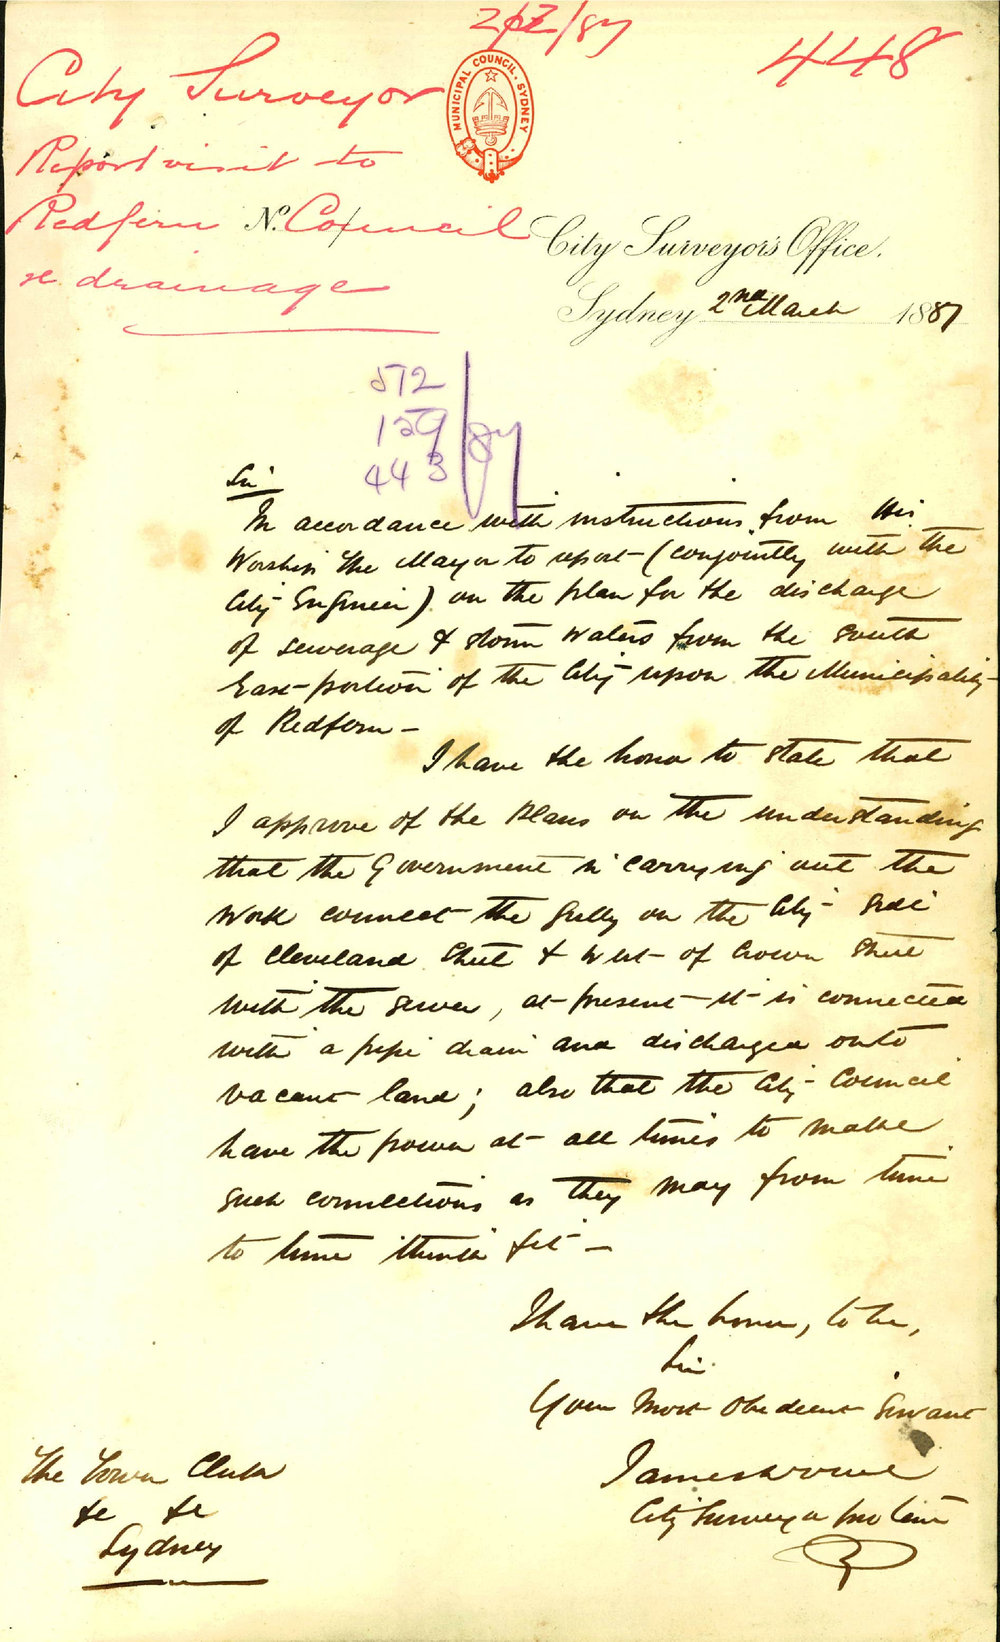 2/3/87
448
City Surveyor
Report visit to
Redfern Council
re drainage
MUNICIPAL COUNCIL. SYDNEY
No.
City Surveyor's Office.
Sydney 2nd March 1887
572
129
443
/87
Sir
In accordance with instructions from His
Worship the Mayor to report (conjointly with the
City Engineer) on the plan for the discharge
of sewerage & storm waters from the South
East portion of the City upon the Municipality
of Redfern —
I have the honor to state that
I approve of the Plans on the understanding
that the Government in carrying out the
Work connect the gully on the City side
of Cleveland Street & West of Crown Street
with the sewer, at present it is connected
with a pipe drain and discharged onto
vacant land; also that the City Council
have the power at all times to make
such connections as they may from time
to time think fit —
I have the honor, to be,
Sir
Your Most Obedient Servant
James
City Surveyor pro tem
The Town Clerk
&c &c
Sydney